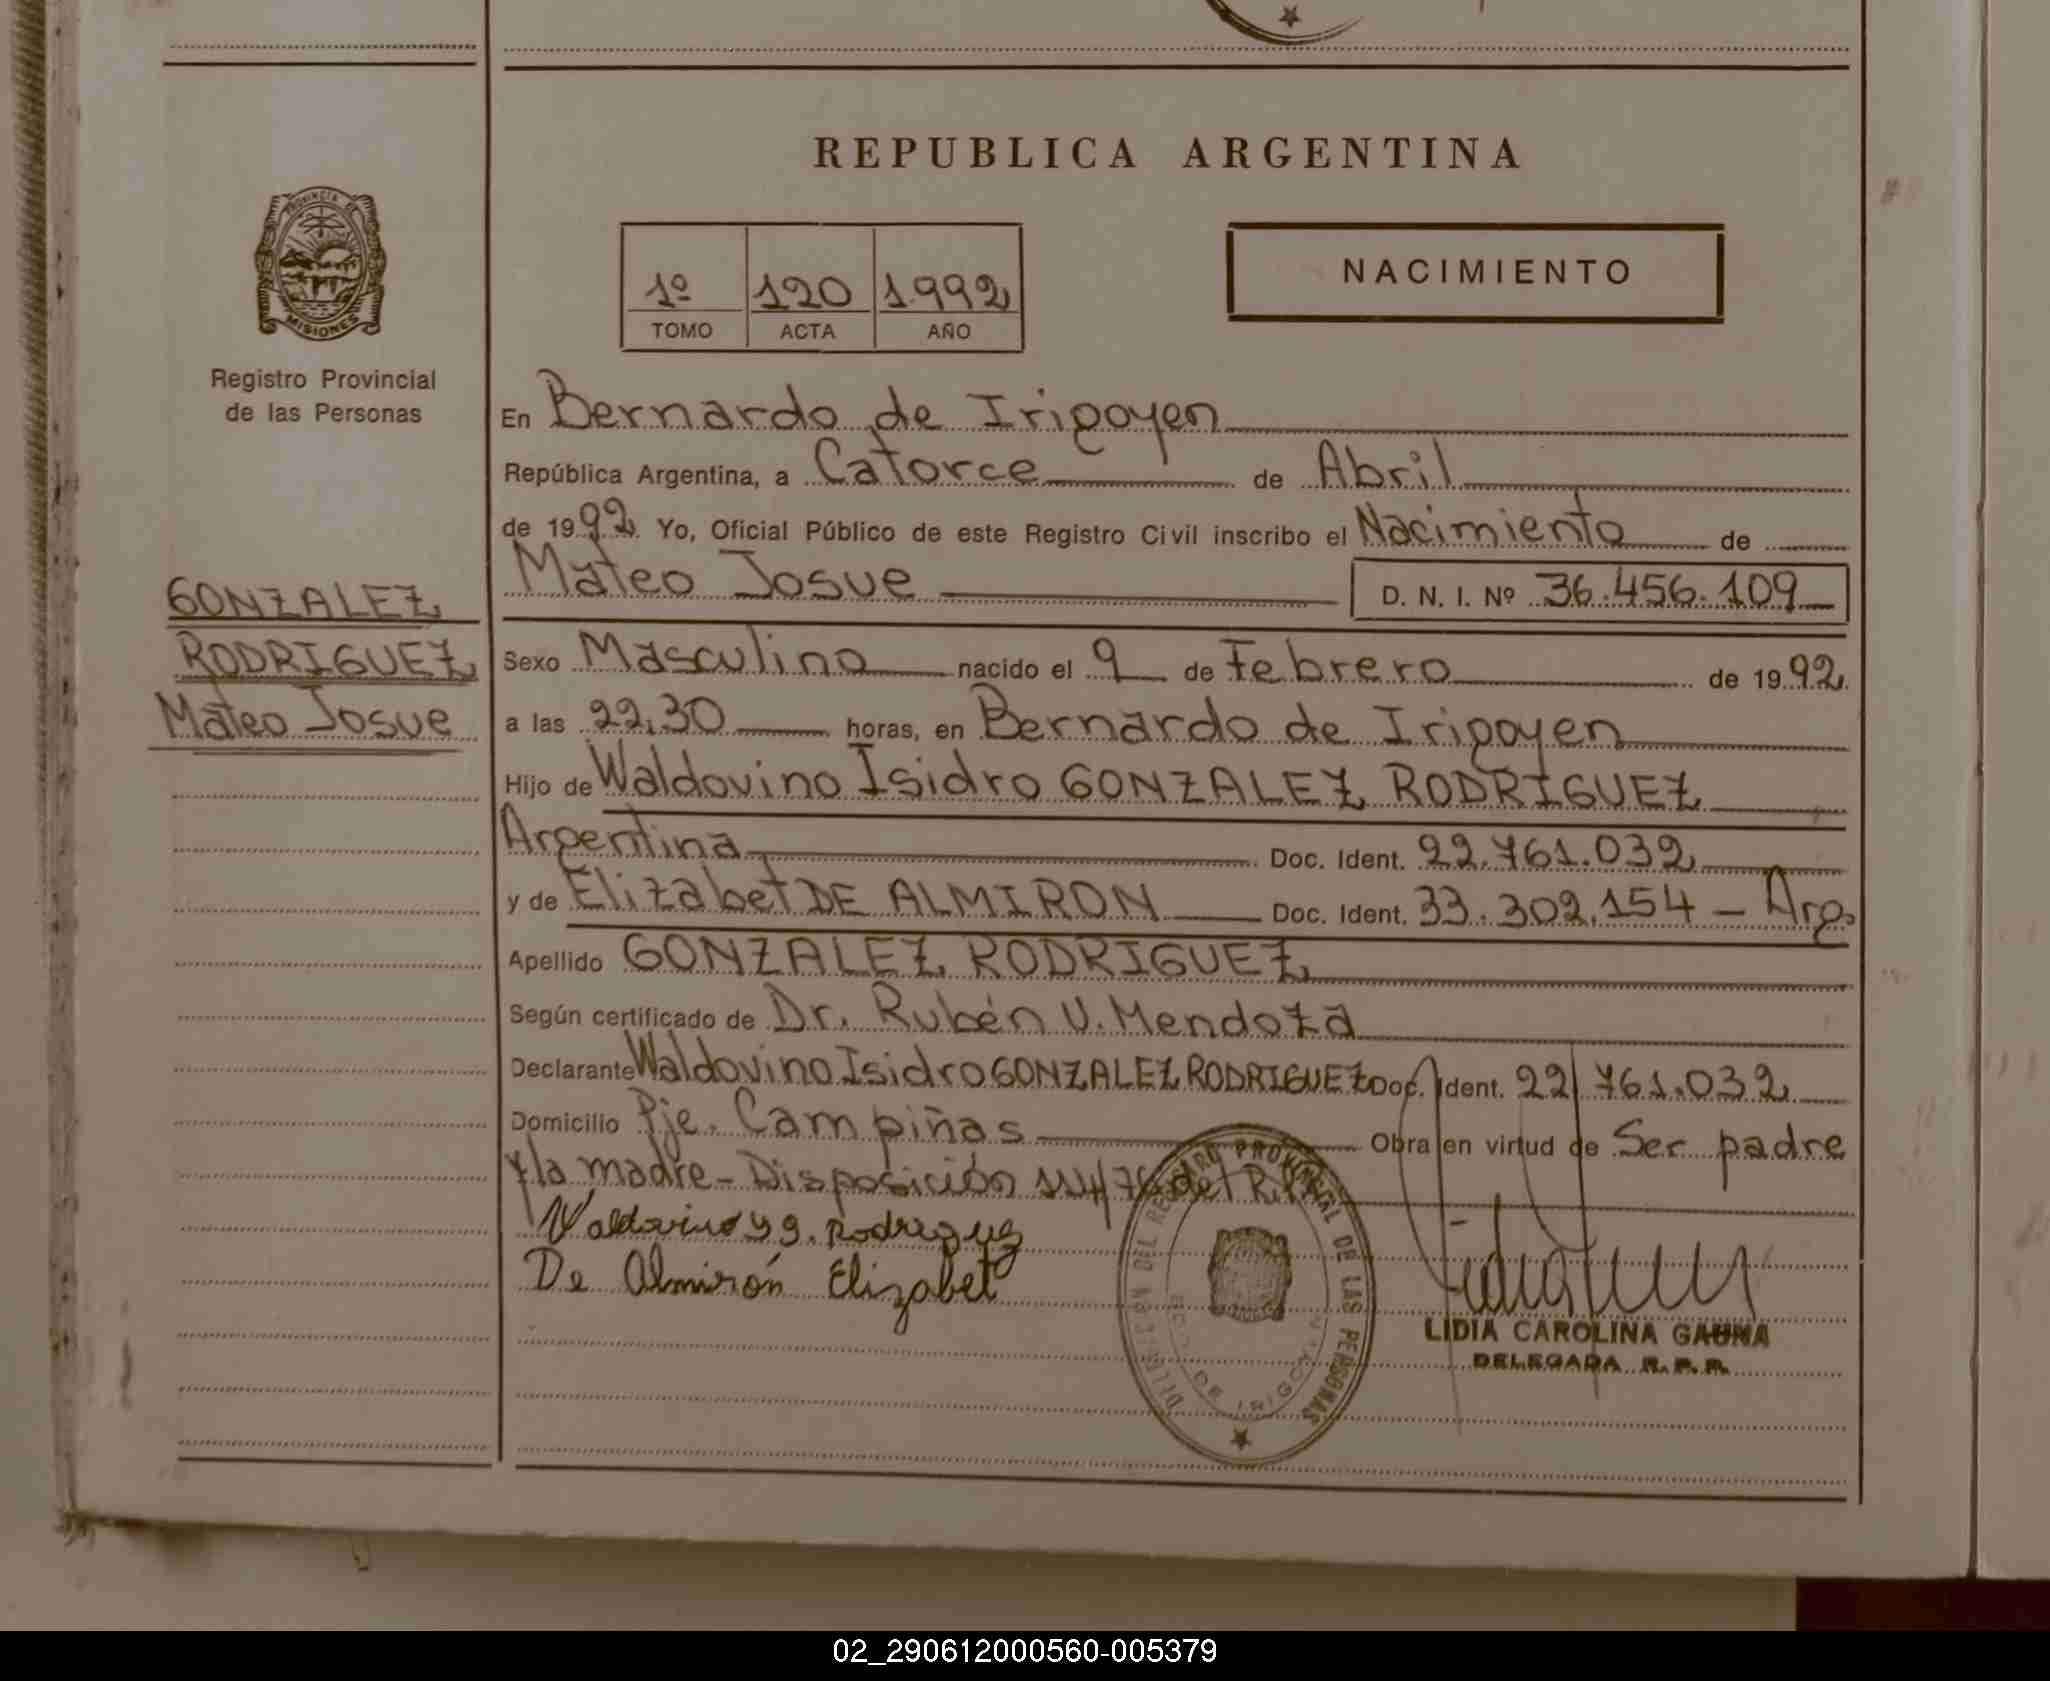 REPUBLICA ARGENTINA
PROVINCIA DE
MISIONES
Registro Provincial
de las Personas
GONZALEZ
RODRIGUEZ
Mateo Josue
1º 120 1.992
TOMO ACTA AÑO
NACIMIENTO
En Bernardo de Irigoyen
República Argentina, a Catorce de Abril
de 1992 Yo, Oficial Público de este Registro Civil inscribo el Nacimiento de
Mateo Josue D. N. I. Nº 36.456.109
Sexo Masculino nacido el 9 de Febrero de 1992
a las 22,30 horas, en Bernardo de Irigoyen
Hijo de Waldovino Isidro GONZALEZ RODRIGUEZ
Argentina Doc. Ident. 22.761.032
y de Elizabet DE ALMIRON Doc. Ident. 33.302.154 - Arg.
Apellido GONZALEZ RODRIGUEZ
Según certificado de Dr. Rubén U. Mendoza
Declarante Waldovino Isidro GONZALEZ RODRIGUEZ Doc. Ident. 22.761.032
Domicilio Pje. Campiñas Obra en virtud de Ser padre
y la madre - Disposición 114/76 del
Waldovino y g. Rodrigug
De Almirón Elizabet
DIRECCION DEL REGISTRO PROVINCIAL DE LAS PERSONAS
DE IRIGOYEN
LIDIA CAROLINA GAUNA
DELEGADA R. P. P.
02_290612000560-005379